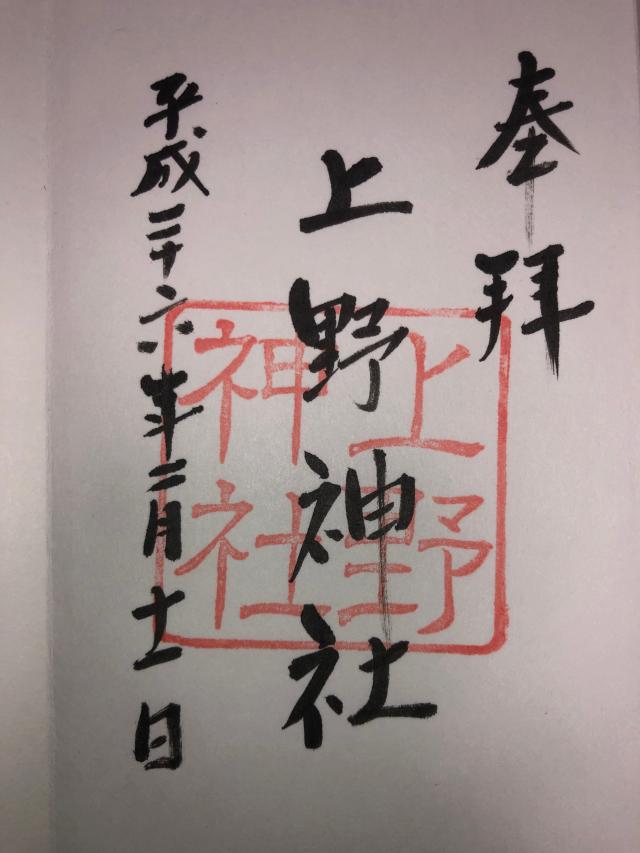 奉拝
上野神社
上野
神社
平成二十六年二月十一日